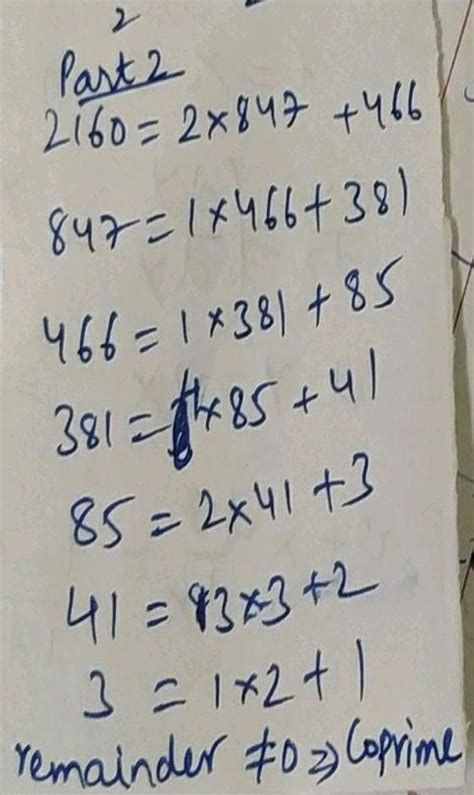 2
Part 2
2160 = 2 × 847 + 466
847 = 1 × 466 + 381
466 = 1 × 381 + 85
381 = 4 × 85 + 41
85 = 2 × 41 + 3
41 = 13 × 3 + 2
3 = 1 × 2 + 1
remainder ≠ 0 ⇒ Coprime